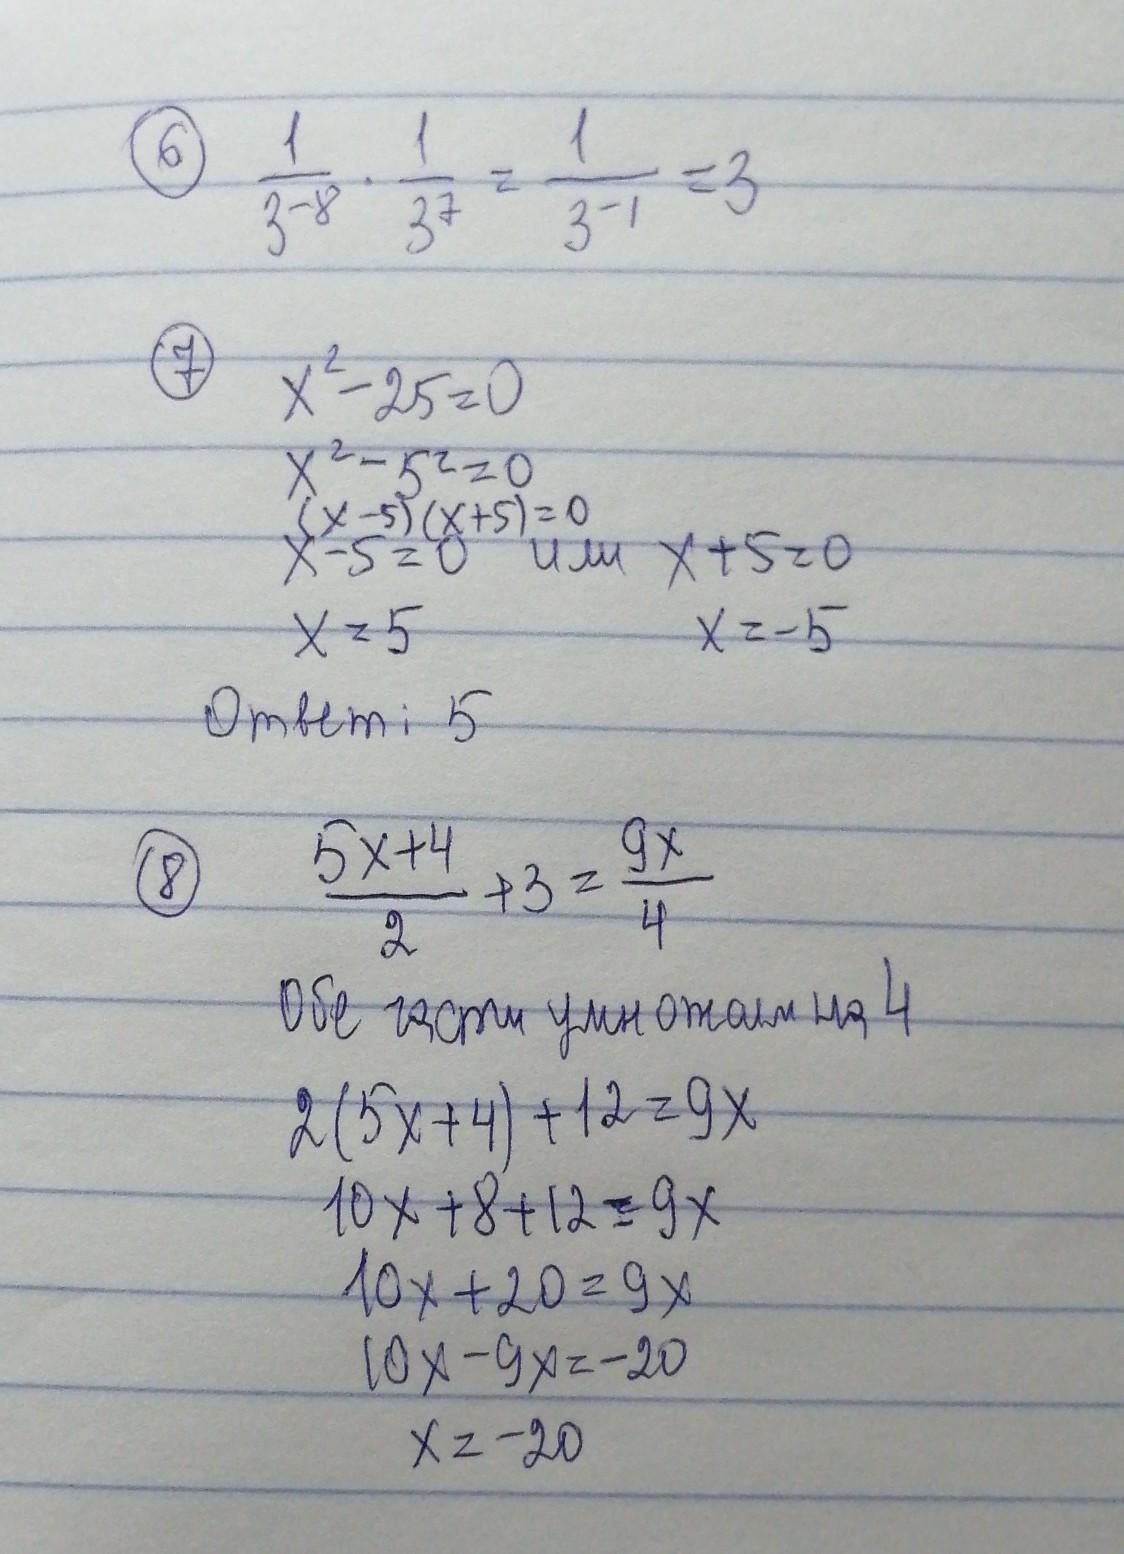 6 1/3⁻⁸ · 1/3⁷ = 1/3⁻¹ = 3
7 x² - 25 = 0
x² - 5² = 0
(x - 5)(x + 5) = 0
x - 5 = 0 или x + 5 = 0
x = 5 x = -5
Ответ: 5
8 (5x+4)/2 + 3 = 9x/4
Обе части умножаем на 4
2(5x+4) + 12 = 9x
10x + 8 + 12 = 9x
10x + 20 = 9x
10x - 9x = -20
x = -20